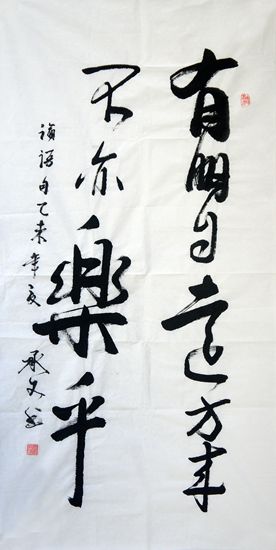 有朋自遠方来
不亦樂乎
論語句乙未年夏 承文书